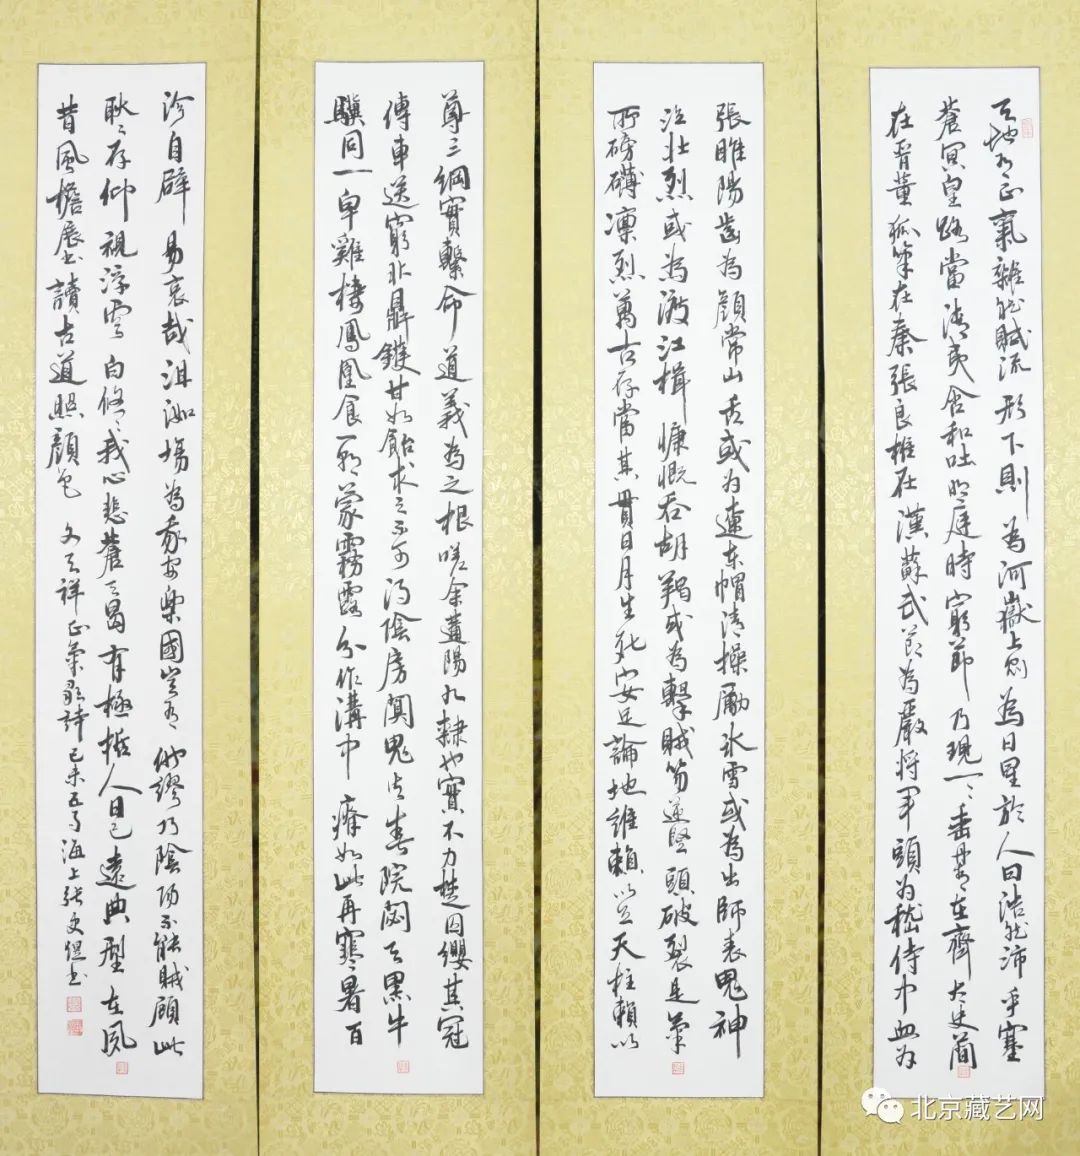 天地有正氣雜然賦流形下則為河嶽上則為日星於人曰浩然沛乎塞
蒼冥皇路當清夷含和吐明庭時窮節乃現一々垂丹青在齊太史簡
在晉董狐筆在秦張良椎在漢蘇武節為嚴將軍頭為嵇侍中血為
張睢陽齒為顏常山舌或為遼東帽清操勵冰雪或為出師表鬼神
泣壯烈或為渡江楫慷慨吞胡羯或為擊賊笏逆豎頭破裂是氣
所磅礴凜烈萬古存當其貫日月生死安足論地維賴以立天柱賴以
尊三綱實繫命道義為之根嗟余遘陽九隸也實不力楚囚纓其冠
傳車送窮北鼎鑊甘如飴求之不可得陰房闃鬼火春院閟天黑牛
驥同一皁雞棲鳳凰食一朝蒙霧露分作溝中瘠如此再寒暑百
沴自辟易哀哉沮洳場為我安樂國豈有他繆巧陰陽不能賊顧此
耿々存仰視浮雲白悠々我心悲蒼天曷有極哲人日已遠典型在夙
昔風檐展書讀古道照顏色 文天祥正氣歌詩己未五月海上張書
北京藏艺网